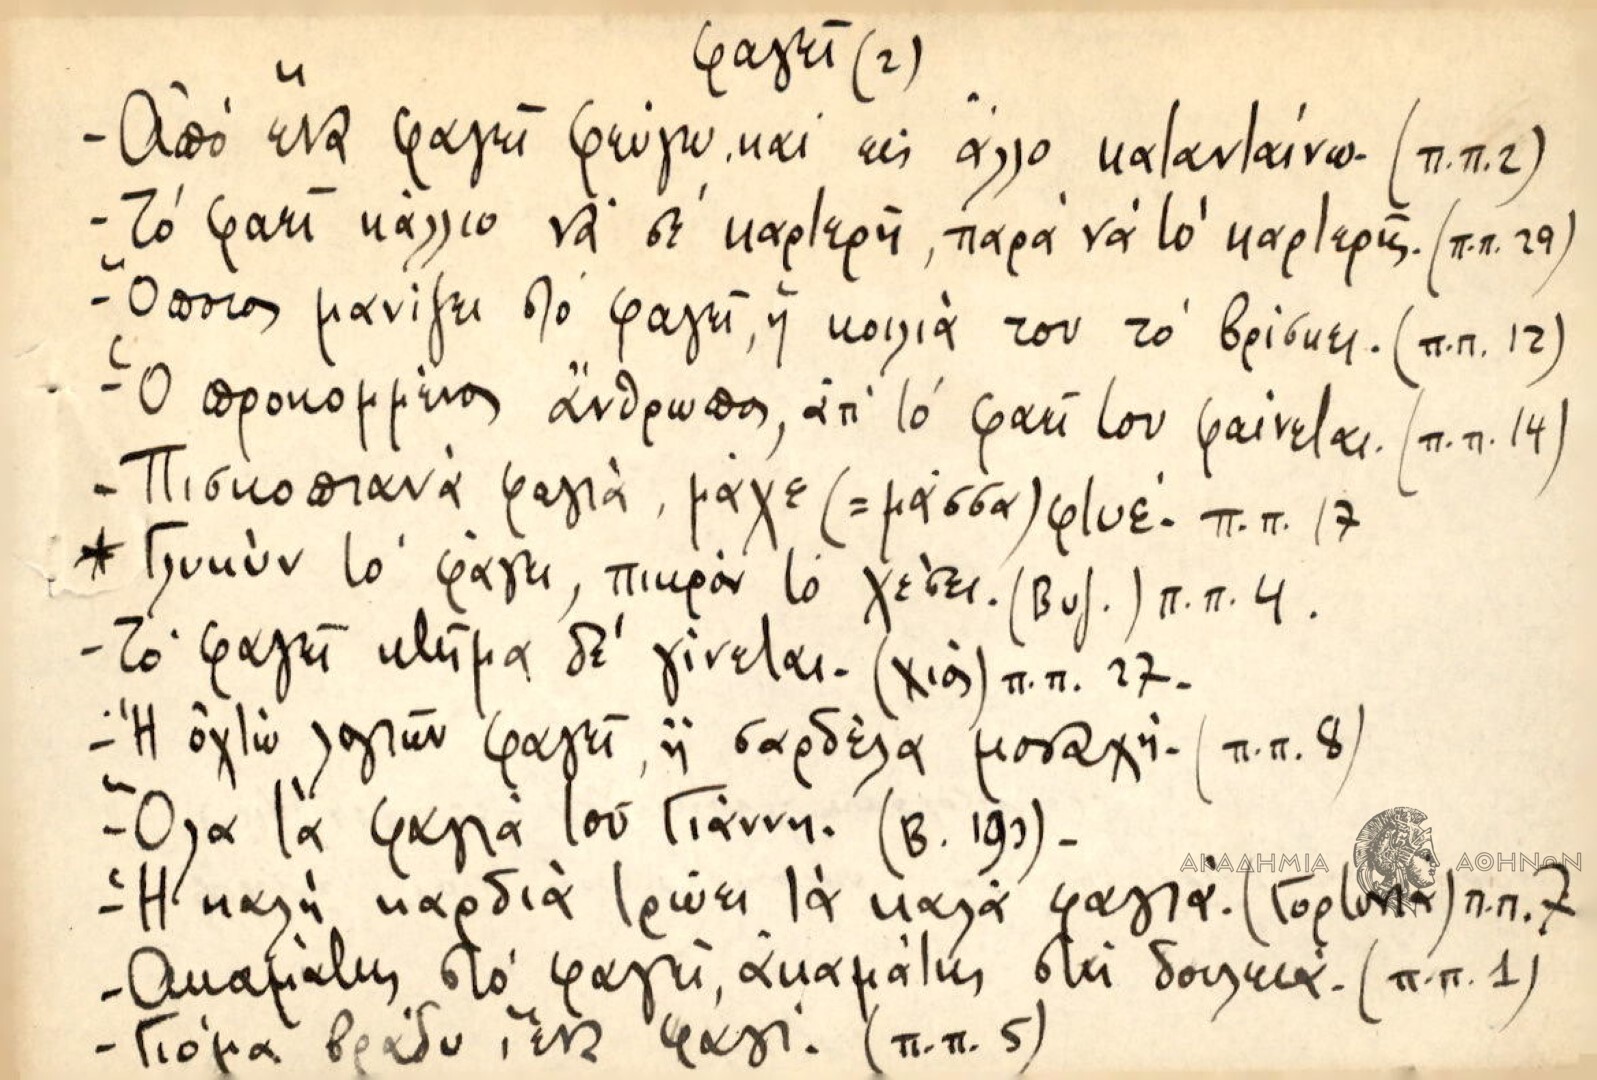 φαγεῖ (2)
- Ἀπό ἕνα φαγεῖ φεύγω, καί εἰς ἄλλο κατανταίνω. (π.π.2)
- Τό φαεῖ κάλλιο νά σέ καρτερῇ, παρά νά τό καρτερῇς. (π.π. 29)
- Ὅποιος μανίζει στό φαγεῖ, ἡ κοιλιά του τό βρίσκει. (π.π. 12)
- Ὁ προκομμένος ἄνθρωπος, ἀπ' τό φαεῖ του φαίνεται. (π.π. 14)
- Πισκοπιανά φαγιά, μάχε (=μάσσα) φτυέ. π.π. 17
* Γλυκύν τό φάγει, πικρόν τό χέσει. (Βυζ.) π.π. 4.
- Τό φαγεῖ κτῆμα δέ γίνεται. (Χιός) π.π. 27.
- Ἡ ὀχτώ λογιῶν φαγεῖ, ἤ σαρδέλα μοναχή. (π.π. 8)
- Ὅλα τά φαγιά τοῦ Γιάννη. (Β. 193). -
- Ἡ καλή καρδιά τρώει τά καλά φαγιά. (Γορτυνία) π.π. 7
- Ἀκαμάτης στό φαγεῖ, ἀκαμάτης στή δουλειά. (π.π. 1)
- Γιόμα βράδυ ἕνα φαγί. (π.π. 5)
ΑΚΑΔΗΜΙΑ ΑΘΗΝΩΝ